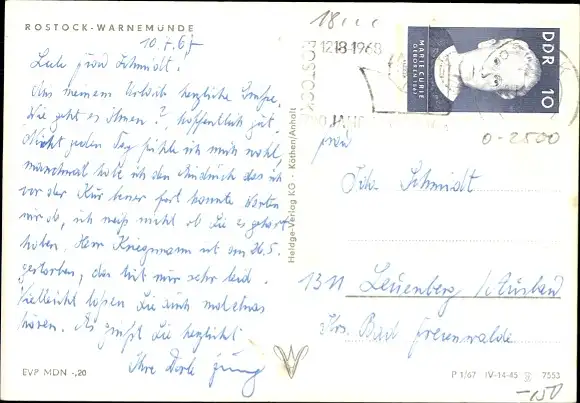 ROSTOCK-WARNEMÜNDE
10.7.67
Liebe Frau Schmidt!
Aus meinem Urlaub herzliche Grüße,
Wie geht es Ihnen?, hoffentlich gut.
Nicht jeden Tag fühle ich mich wohl,
manchmal habe ich den Eindruck das ich
vor der Kur besser fort konnte. Warten
wir ab, ich weiß nicht ob Sie es gehört
haben. Herr Kriegsmann ist am 26.5.
gestorben, das tut mir sehr leid.
Vielleicht lassen Sie auch mal etwas
hören. Es grüßt Sie herzlichst
Ihre Dorle Jung
EVP MDN -,20
Heldge-Verlag KG · Köthen/Anhalt
18
1218-1968
ROSTOCK
JAHRE
MARIE CURIE
GEBOREN 1867
DDR 10
0-2500
Frau
Ida Schmidt
1311 Leuenberg
Krs. Bad Freienwalde
P 1/67 IV-14-45 7553
-150